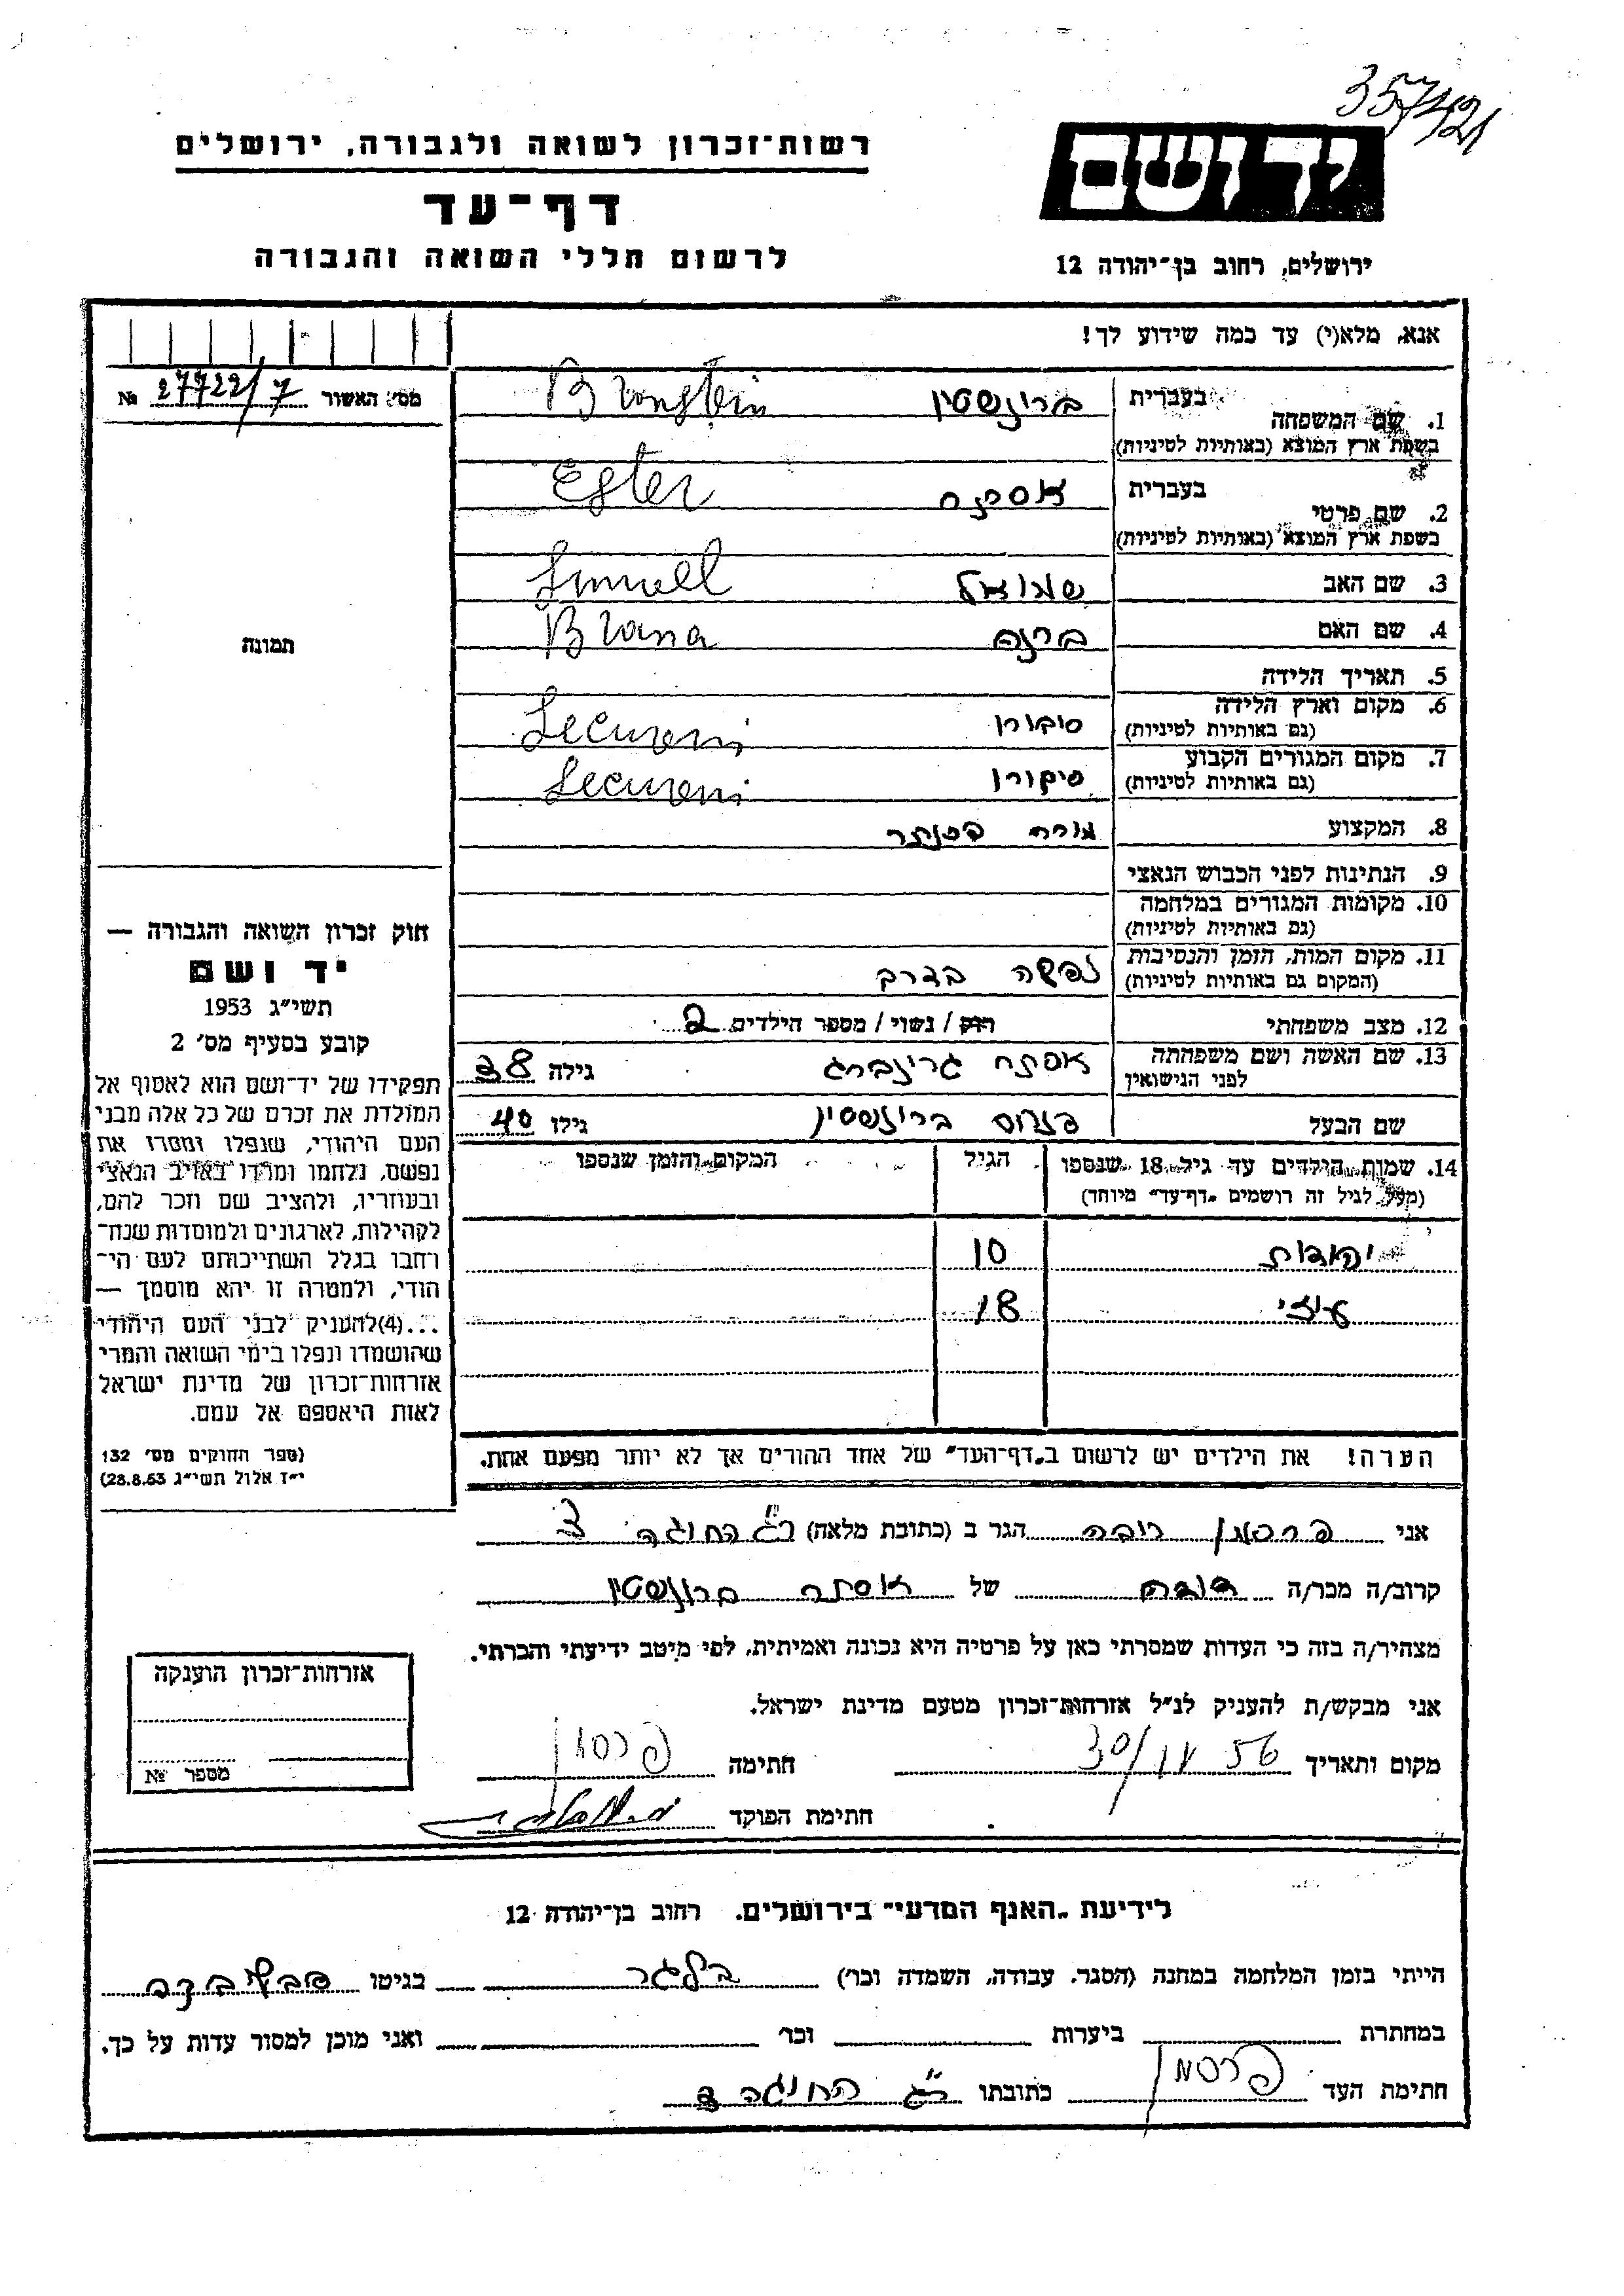 357421
רשות־זכרון לשואה ולגבורה, ירושלים
דף־עד
לרשום חללי השואה והגבורה
יד ושם
ירושלים, רחוב בן־יהודה 12
אנא, מלא(י) עד כמה שידוע לך!
מס׳ האשור 27722/7 №
1. שם המשפחה
בעברית ברונשטין Bronstein
בשפת ארץ המוצא (באותיות לטיניות)
2. שם פרטי
בעברית אסתר Ester
בשפת ארץ המוצא (באותיות לטיניות)
3. שם האב שמואל Smuell
4. שם האם ברנה Brana
5. תאריך הלידה
6. מקום וארץ הלידה
(גם באותיות לטיניות) Secureni
7. מקום המגורים הקבוע
(גם באותיות לטיניות) סיקורן Secureni
8. המקצוע
9. הנתינות לפני הכבוש הנאצי
10. מקומות המגורים במלחמה
(גם באותיות לטיניות)
11. מקום המות, הזמן והנסיבות
(המקום גם באותיות לטיניות) בדרך
12. מצב משפחתי רווק / נשוי / מספר הילדים 2
13. שם האשה ושם משפחתה
לפני הנישואין אסתר גרינברג גילה 38
שם הבעל ברונשטין גילו 40
14. שמות הילדים עד גיל 18 שנספו
(מעל לגיל זה רושמים „דף־עד״ מיוחד)
הגיל
המקום והזמן שנספו
יהודית 10
18
הערה! את הילדים יש לרשום ב„דף־העד״ של אחד ההורים אך לא יותר מפעם אחת.
תמונה
חוק זכרון השואה והגבורה —
יד ושם
תשי״ג 1953
קובע בסעיף מס׳ 2
תפקידו של יד־ושם הוא לאסוף אל
המולדת את זכרם של כל אלה מבני
העם היהודי, שנפלו ומסרו את
נפשם, נלחמו ומרדו באויב הנאצי
ובעוזריו, ולהציב שם וזכר להם,
לקהילות, לארגונים ולמוסדות שנח־
רחבו בגלל השתייכותם לעם הי־
הודי, ולמטרה זו יהא מוסמך —
...(4) להעניק לבני העם היהודי
שהושמדו ונפלו בימי השואה והמרי
אזרחות־זכרון של מדינת ישראל
לאות היאספם אל עמם.
(ספר החוקים מס׳ 132
י״ז אלול תשי״ג 28.8.53)
אני פרסמן הגר ב (כתובת מלאה)
קרוב/ה מכר/ה של אסתר ברונשטין
מצהיר/ה בזה כי העדות שמסרתי כאן על פרטיה היא נכונה ואמיתית, לפי מיטב ידיעתי והכרתי.
אני מבקש/ת להעניק לנ״ל אזרחות־זכרון מטעם מדינת ישראל.
מקום ותאריך חתימה פרסמן
חתימת הפוקד
אזרחות־זכרון הוענקה
מספר №
לידיעת „האגף המדעי״ בירושלים, רחוב בן־יהודה 12
הייתי בזמן המלחמה במחנה (הסגר, עבודה, השמדה וכר׳) בגיטו
במחתרת ביערות וכר׳ ואני מוכן למסור עדות על כך.
חתימת העד פרסמן כתובתו